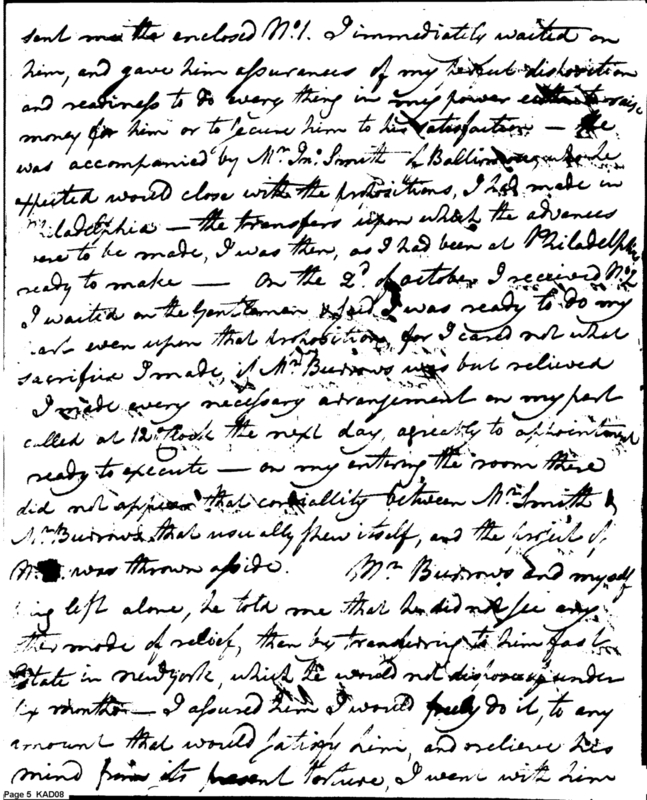 sent me the enclosed No. 1. I immediately waited on
him, and gave him assurances of my disposition
and readiness to do every thing in my power either to raise
money for him or to secure him to his satisfaction — He
was accompanied by Mr. Jno. Smith of Baltimore, who he
expected would close with the propositions, I had made in
Philadelphia — the transfers upon which the advances
were to be made, I was then, as I had been at Philadelphia
ready to make — On the 2d. of October I received No. 2
I waited on the Gentlemen & said I was ready to do my
part even upon that proposition for I cared not what
sacrifice I made, if Mr. Burrows was but relieved
I made every necessary arrangement on my part
called at 12 oClock the next day, agreeably to appointment
ready to execute — on my entering the room there
did not appear that cordiallity between Mr. Smith &
Mr. Burrows that usually shew itself, and the project of
No. was thrown asside. Mr. Burrows and myself
being left alone, he told me that he did not see any
other mode of relief, then by transferring to him
Estate in newyork, which he would not dispose of under
six months — I assured him I would freely do it, to any
amount that would satisfy him, and relieve his
mind from its present torture, I went with him
Page 5 KAD08